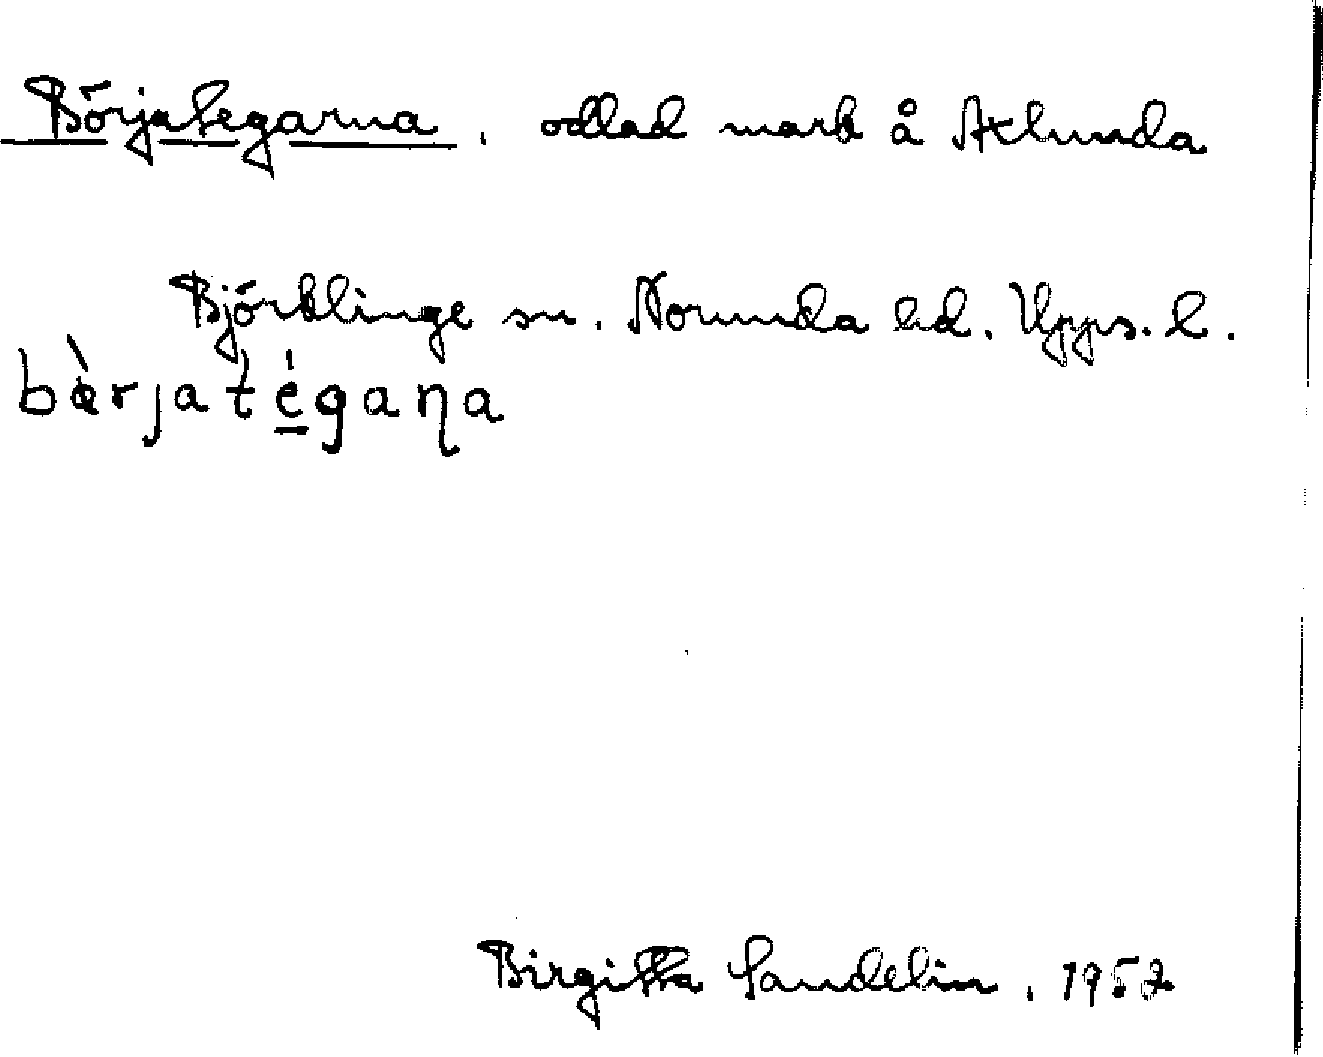 Börjategarna, odlad mark å Axlunda
Björklinge sn. Norunda hd. Upps. l.
bə̀rjatégaɳa
Birgitta Sandelin, 1952